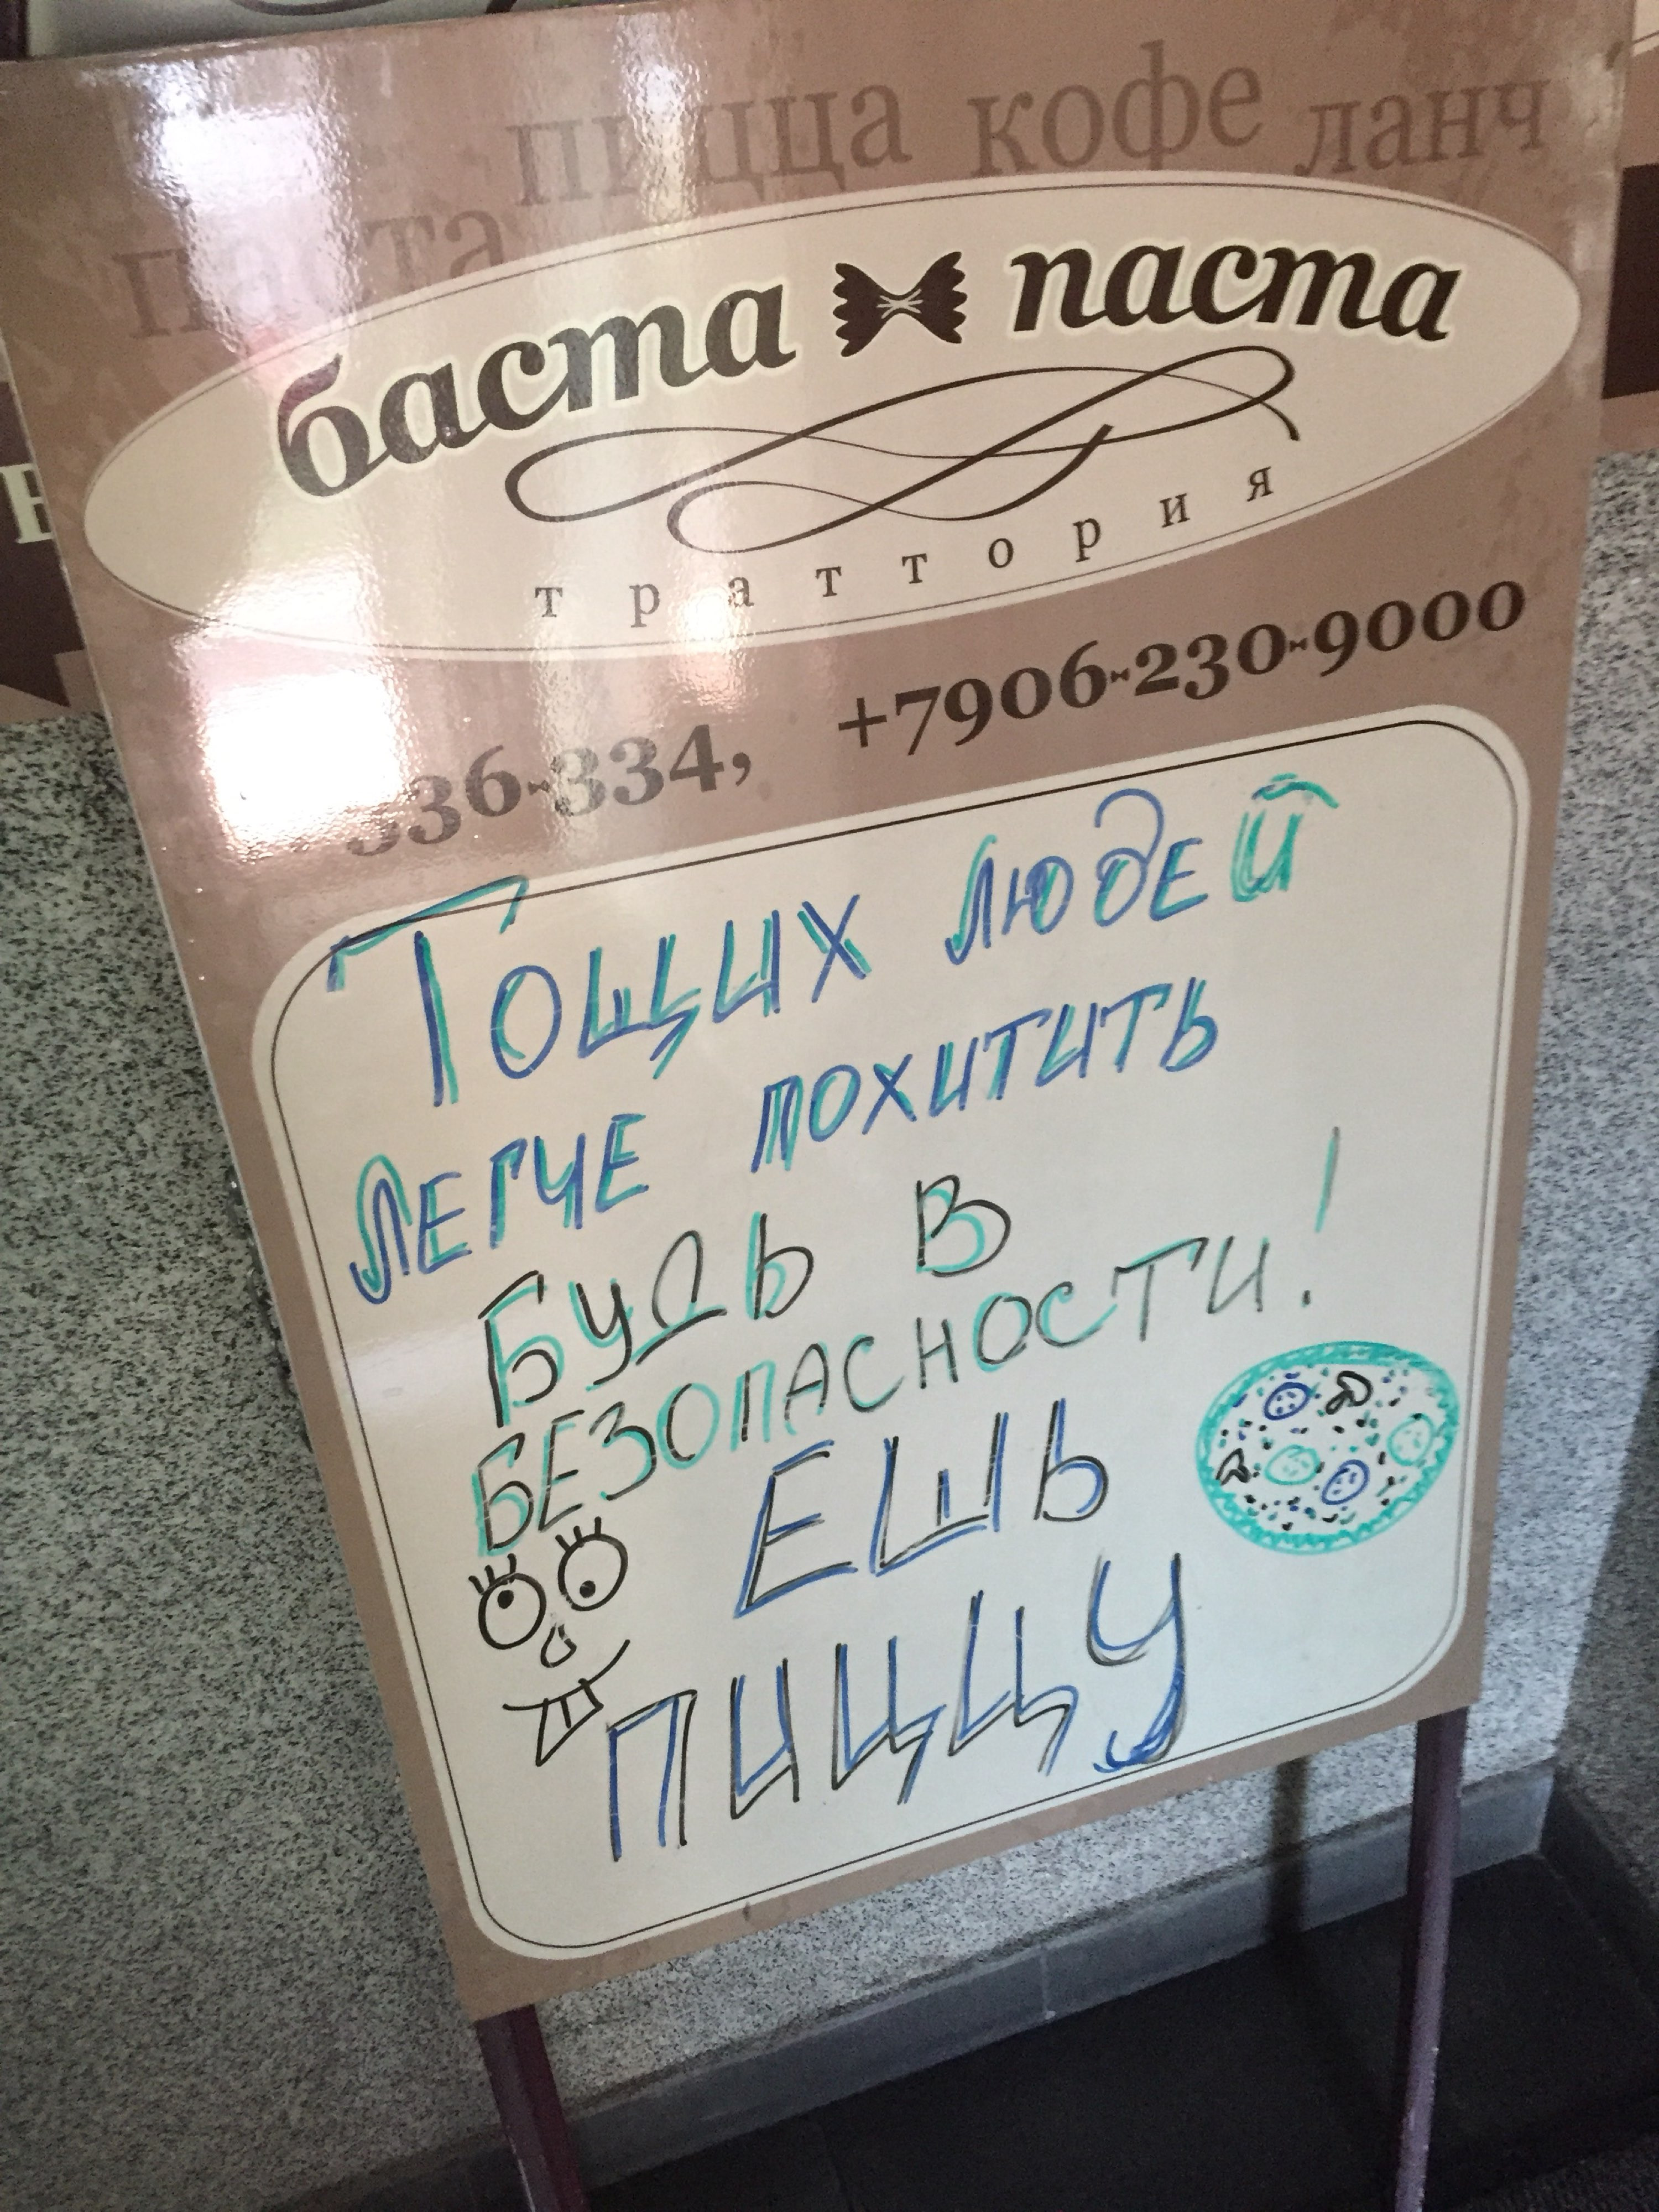 пицца кофе ланч
паста
баста паста
траттория
336-334, +7906-230-9000
Тощих людей
легче похитить
Будь в
безопасности!
Ешь
пиццу